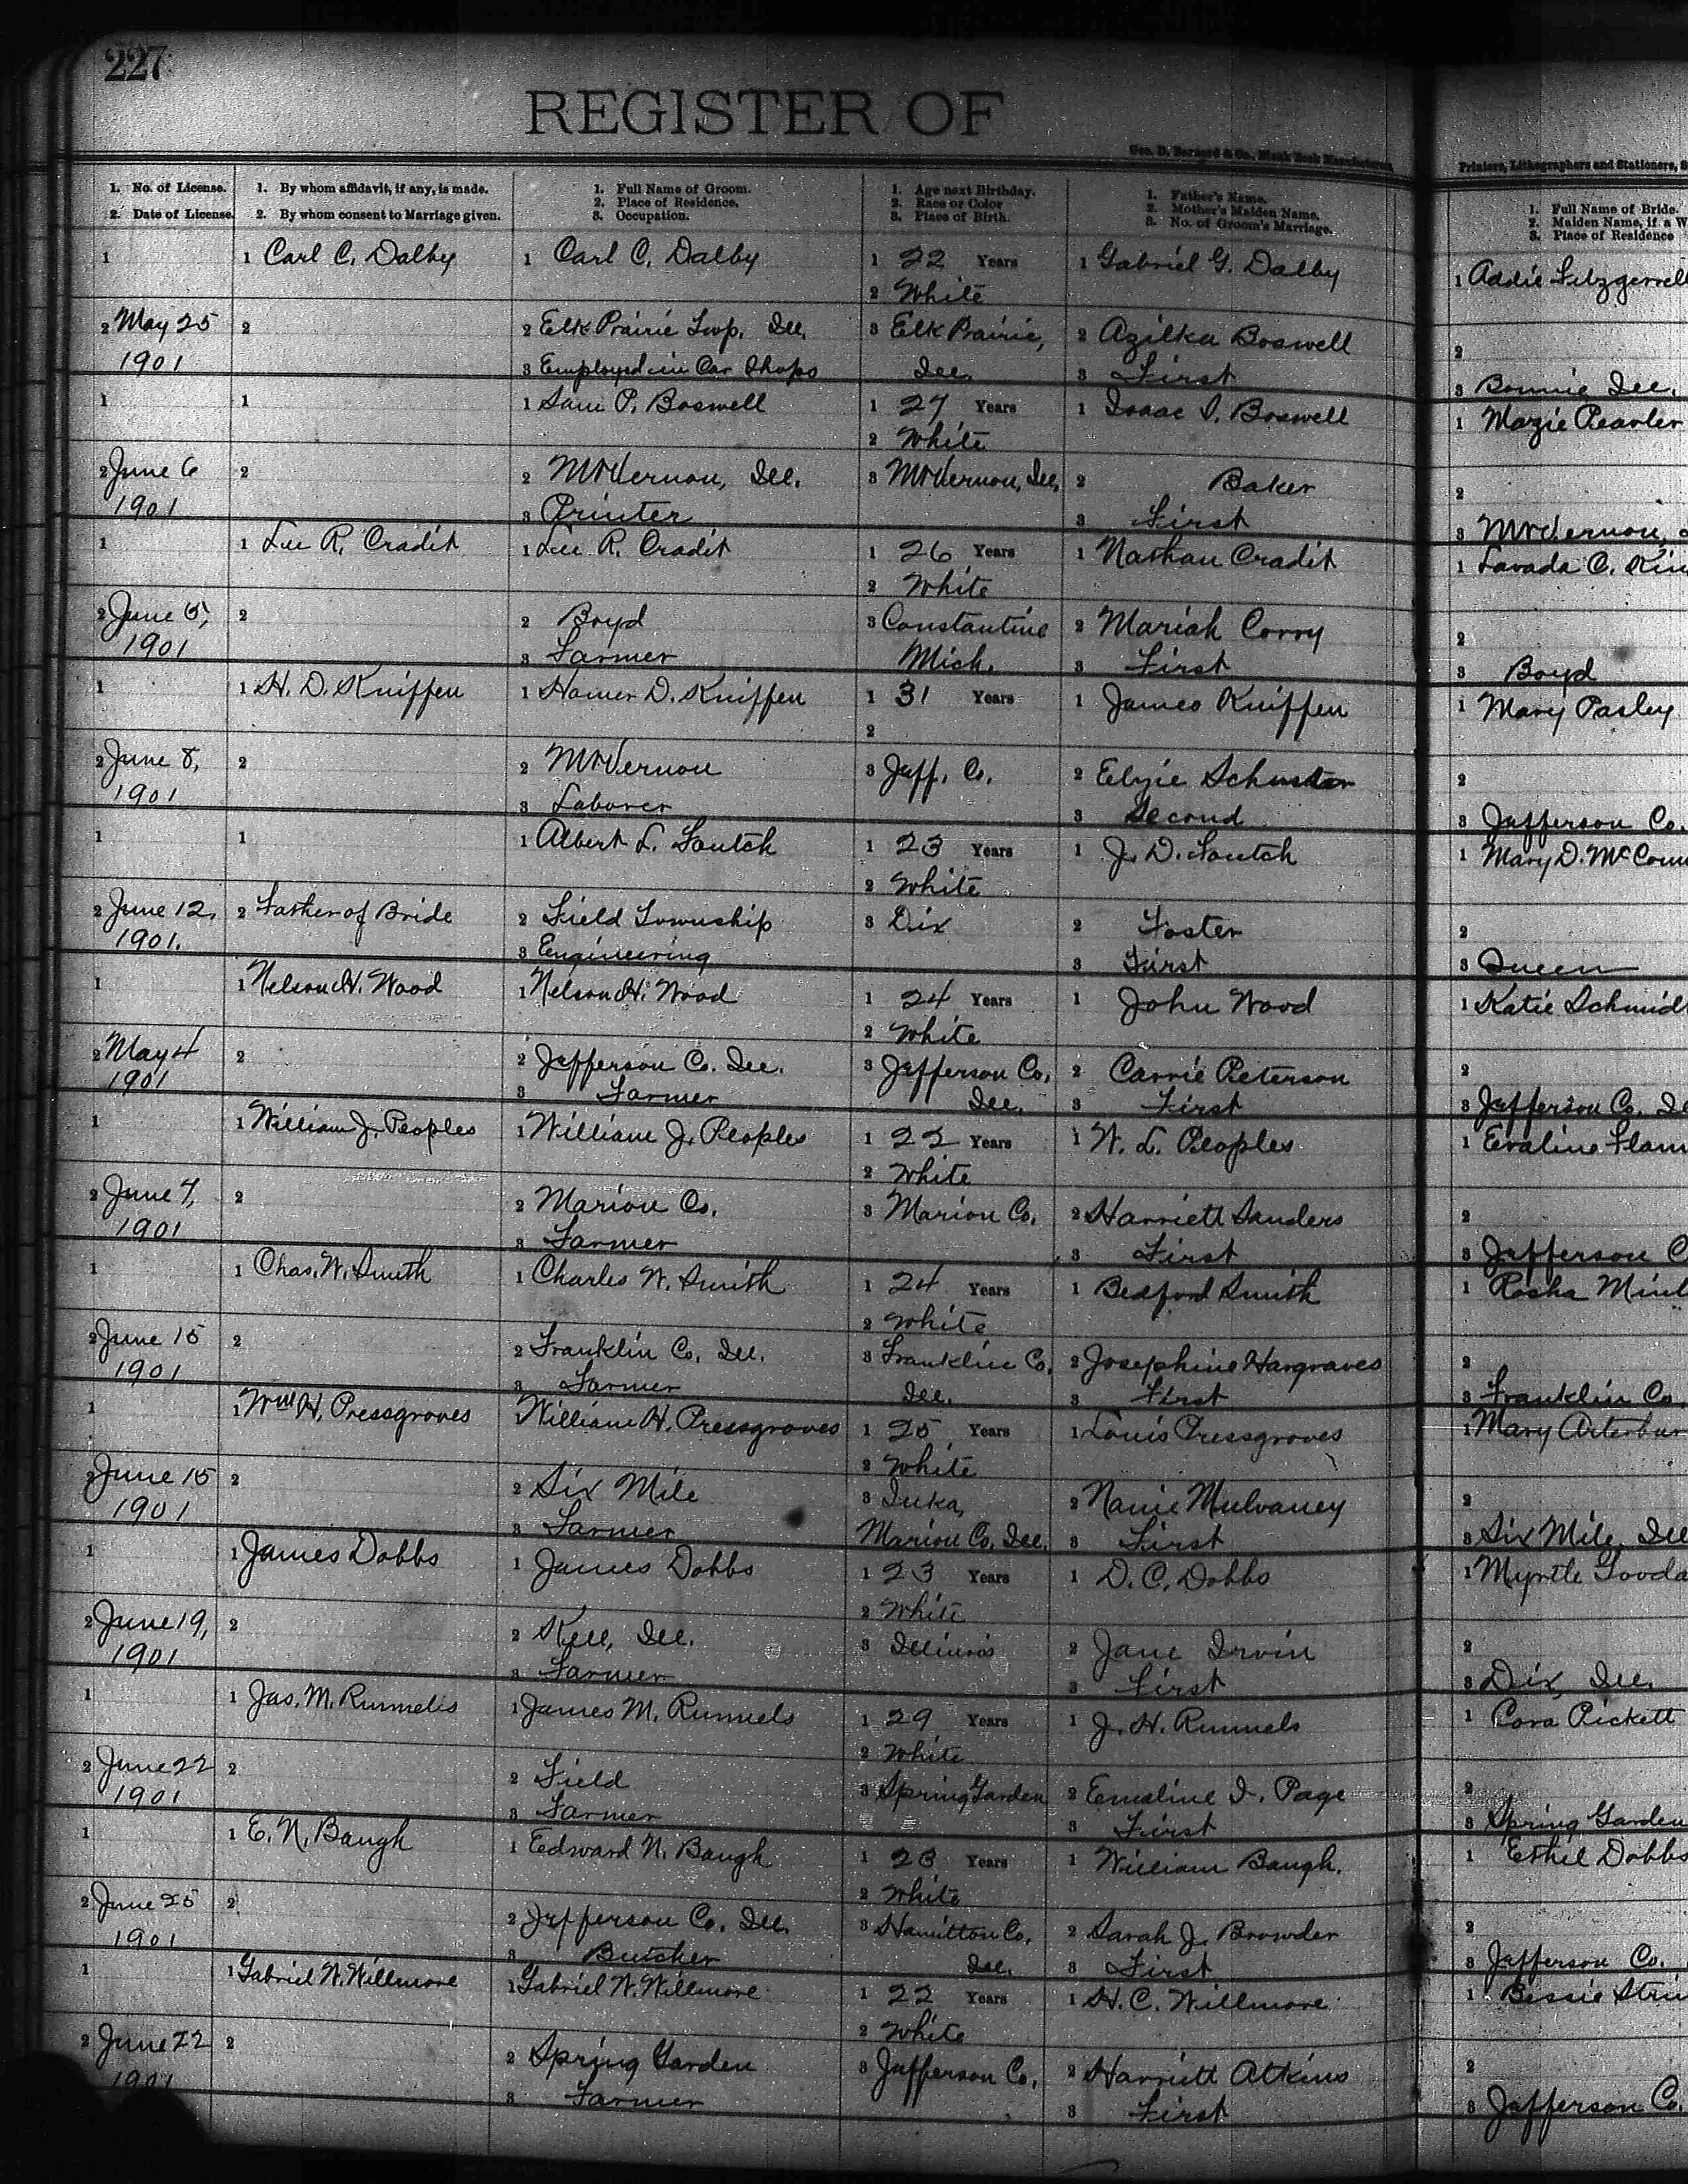 227
REGISTER OF
Geo. D. Barnard & Co., Blank Book Manufacturers,
Printers, Lithographers and Stationers, S
1. No. of License.
2. Date of License.
1. By whom affidavit, if any, is made.
2. By whom consent to Marriage given.
1. Full Name of Groom.
2. Place of Residence.
3. Occupation.
1. Age next Birthday.
2. Race or Color
3. Place of Birth.
1. Father's Name.
2. Mother's Maiden Name.
3. No. of Groom's Marriage.
1. Full Name of Bride.
2. Maiden Name, if a W
3. Place of Residence
1 1 Carl C. Dalby 1 Carl C. Dalby 1 22 Years 1 Gabriel G. Dalby 1 Addie Fitzgerrell
2 White
2 May 25 2 2 Elk Prairie Twp. Ill. 3 Elk Prairie, 2 Azilka Boswell 2
1901 3 Employed in Car Shops Ill. 3 First 3 Bonnie Ill.
1 1 1 Sam P. Boswell 1 27 Years 1 Isaac S. Boswell 1 Mazie
2 White
2 June 6 2 2 Mt Vernon, Ill. 3 Mt Vernon, Ill. 2 Baker 2
1901 3 Printer 3 First 3 Mt Vernon,
1 1 Lee R. Cradit 1 Lee R. Cradit 1 26 Years 1 Nathan Cradit 1 Lavada C.
2 White
2 June 5, 2 2 Boyd 3 Constantine 2 Mariah Corry 2
1901 3 Farmer Mich. 3 First 3 Boyd
1 1 H. D. Kniffen 1 Homer D. Kniffen 1 31 Years 1 James Kniffen 1 Mary Pasley
2
2 June 8, 2 2 Mt Vernon 3 Jeff. Co. 2 Elzie Schuster 2
1901 3 Laborer 3 Second 3 Jefferson Co.
1 1 1 Albert L. Foutch 1 23 Years 1 J. D. Foutch 1 Mary D. McConn
2 White
2 June 12, 2 Father of Bride 2 Field Township 3 Dix 2 Foster 2
1901. 3 Engineering 3 First 3 Queen
1 1 Nelson H. Wood 1 Nelson H. Wood 1 24 Years 1 John Wood 1 Katie Schmidt
2 White
2 May 4 2 2 Jefferson Co. Ill. 3 Jefferson Co. 2 Carrie Peterson 2
1901 3 Farmer Ill. 3 First 3 Jefferson Co. Il
1 1 William J. Peoples 1 William J. Peoples 1 22 Years 1 W. L. Peoples 1 Evaline Flann
2 White
2 June 7, 2 2 Marion Co. 3 Marion Co. 2 Harriett Sanders 2
1901 3 Farmer 3 First 3 Jefferson C
1 1 Chas. W. Smith 1 Charles W. Smith 1 24 Years 1 Bedford Smith 1 Rosha
2 White
2 June 15 2 2 Franklin Co. Ill. 3 Franklin Co. 2 Josephine Hargraves 2
1901 3 Farmer Ill. 3 First 3 Franklin Co.
1 1 Wm H. Pressgroves 1 William H. Pressgroves 1 25 Years 1 Louis Pressgroves 1 Mary Arterbur
2 White
2 June 15 2 2 Six Mile 3 Iuka, 2 Nanie Mulvaney 2
1901 3 Farmer Marion Co. Ill. 3 First 3 Six Mile, Ill
1 1 James Dobbs 1 James Dobbs 1 23 Years 1 D. C. Dobbs 1 Myrtle Gooda
2 White
2 June 19, 2 2 Kell, Ill. 3 Illinois 2 Jane Irvin 2
1901 3 Farmer 3 First 3 Dix, Ill.
1 1 Jas. M. Runnels 1 James M. Runnels 1 29 Years 1 J. H. Runnels 1 Cora Pickett
2 White
2 June 22 2 2 Field 3 Spring Garden 2 Emaline I. Page 2
1901 3 Farmer 3 First 3 Spring Garden
1 1 E. N. Baugh 1 Edward N. Baugh 1 23 Years 1 William Baugh. 1 Ethel Dobbs
2 White
2 June 25 2 2 Jefferson Co. Ill. 3 Hamilton Co. 2 Sarah J. Browder 2
1901 3 Butcher Ill. 3 First 3 Jefferson Co.
1 1 Gabriel W. Willmore 1 Gabriel W. Willmore 1 22 Years 1 H. C. Willmore 1 Bessie
2 White
2 June 22 2 2 Spring Garden 3 Jefferson Co. 2 Harriett Atkins 2
1901 3 Farmer 3 First 3 Jefferson Co.